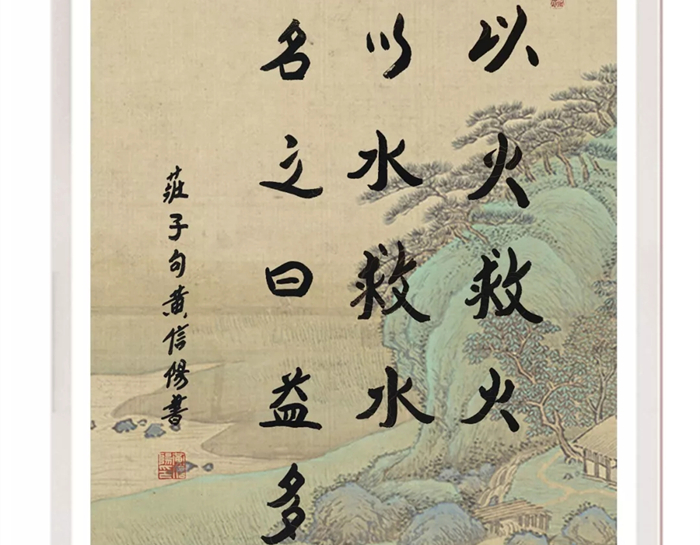 以火救火
以水救水
名之曰益多
莊子句黄信陽書